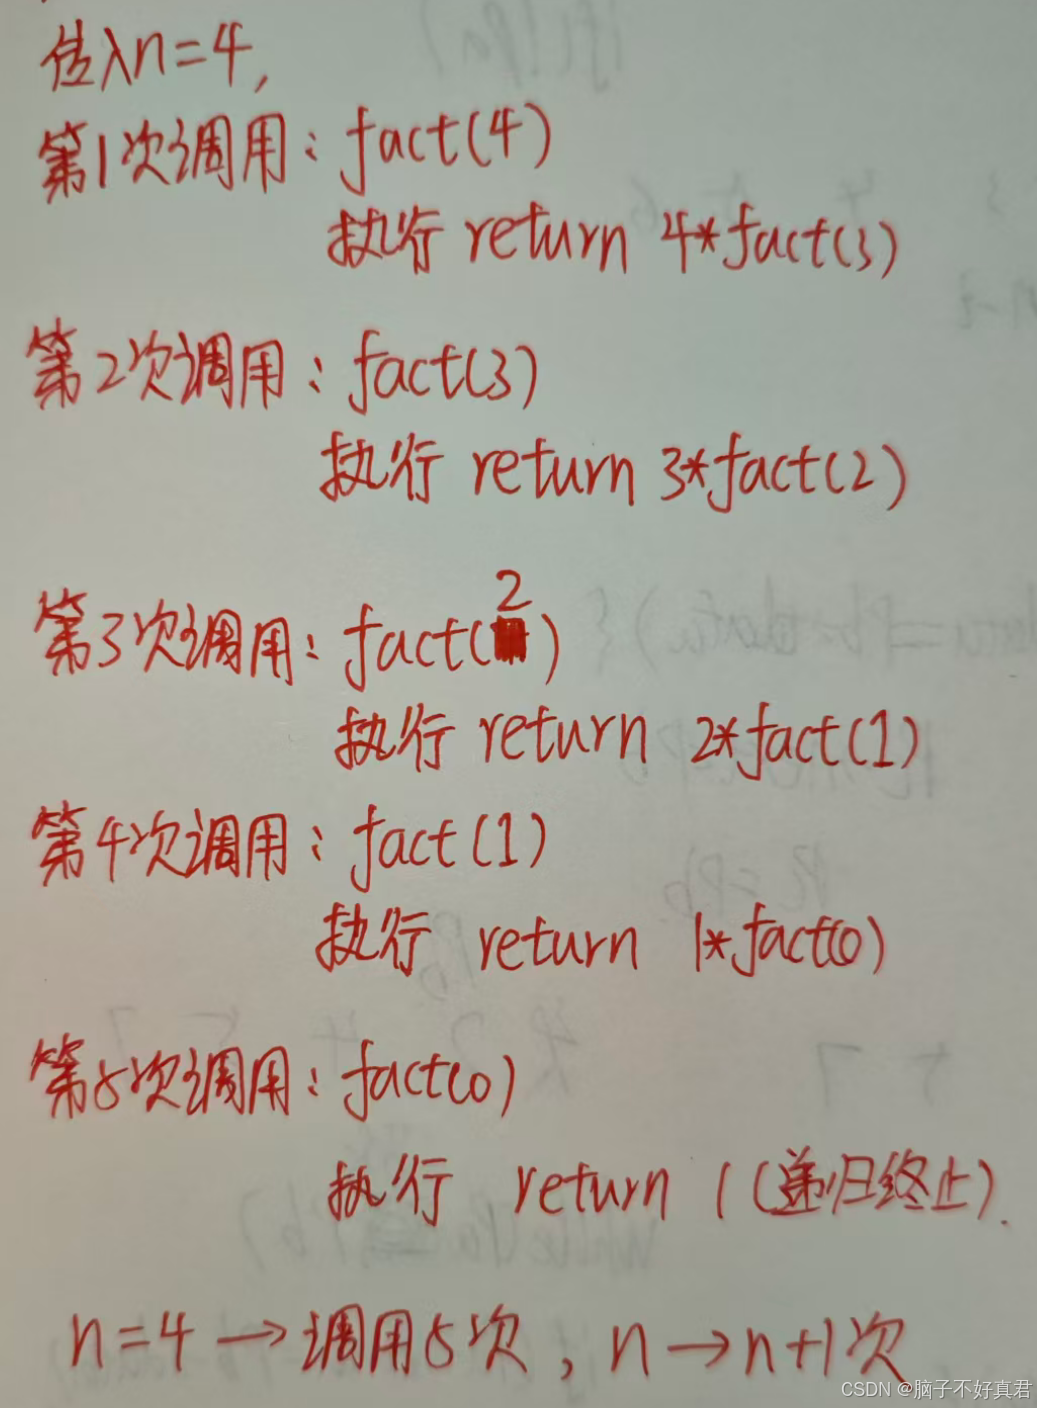 传入n=4,
第1次调用: fact(4)
执行 return 4*fact(3)
第2次调用: fact(3)
执行 return 3*fact(2)
第3次调用: fact(2)
执行 return 2*fact(1)
第4次调用: fact(1)
执行 return 1*fact(0)
第5次调用: fact(0)
执行 return 1 (递归终止).
n=4→调用5次, n→n+1次
CSDN @脑子不好真君